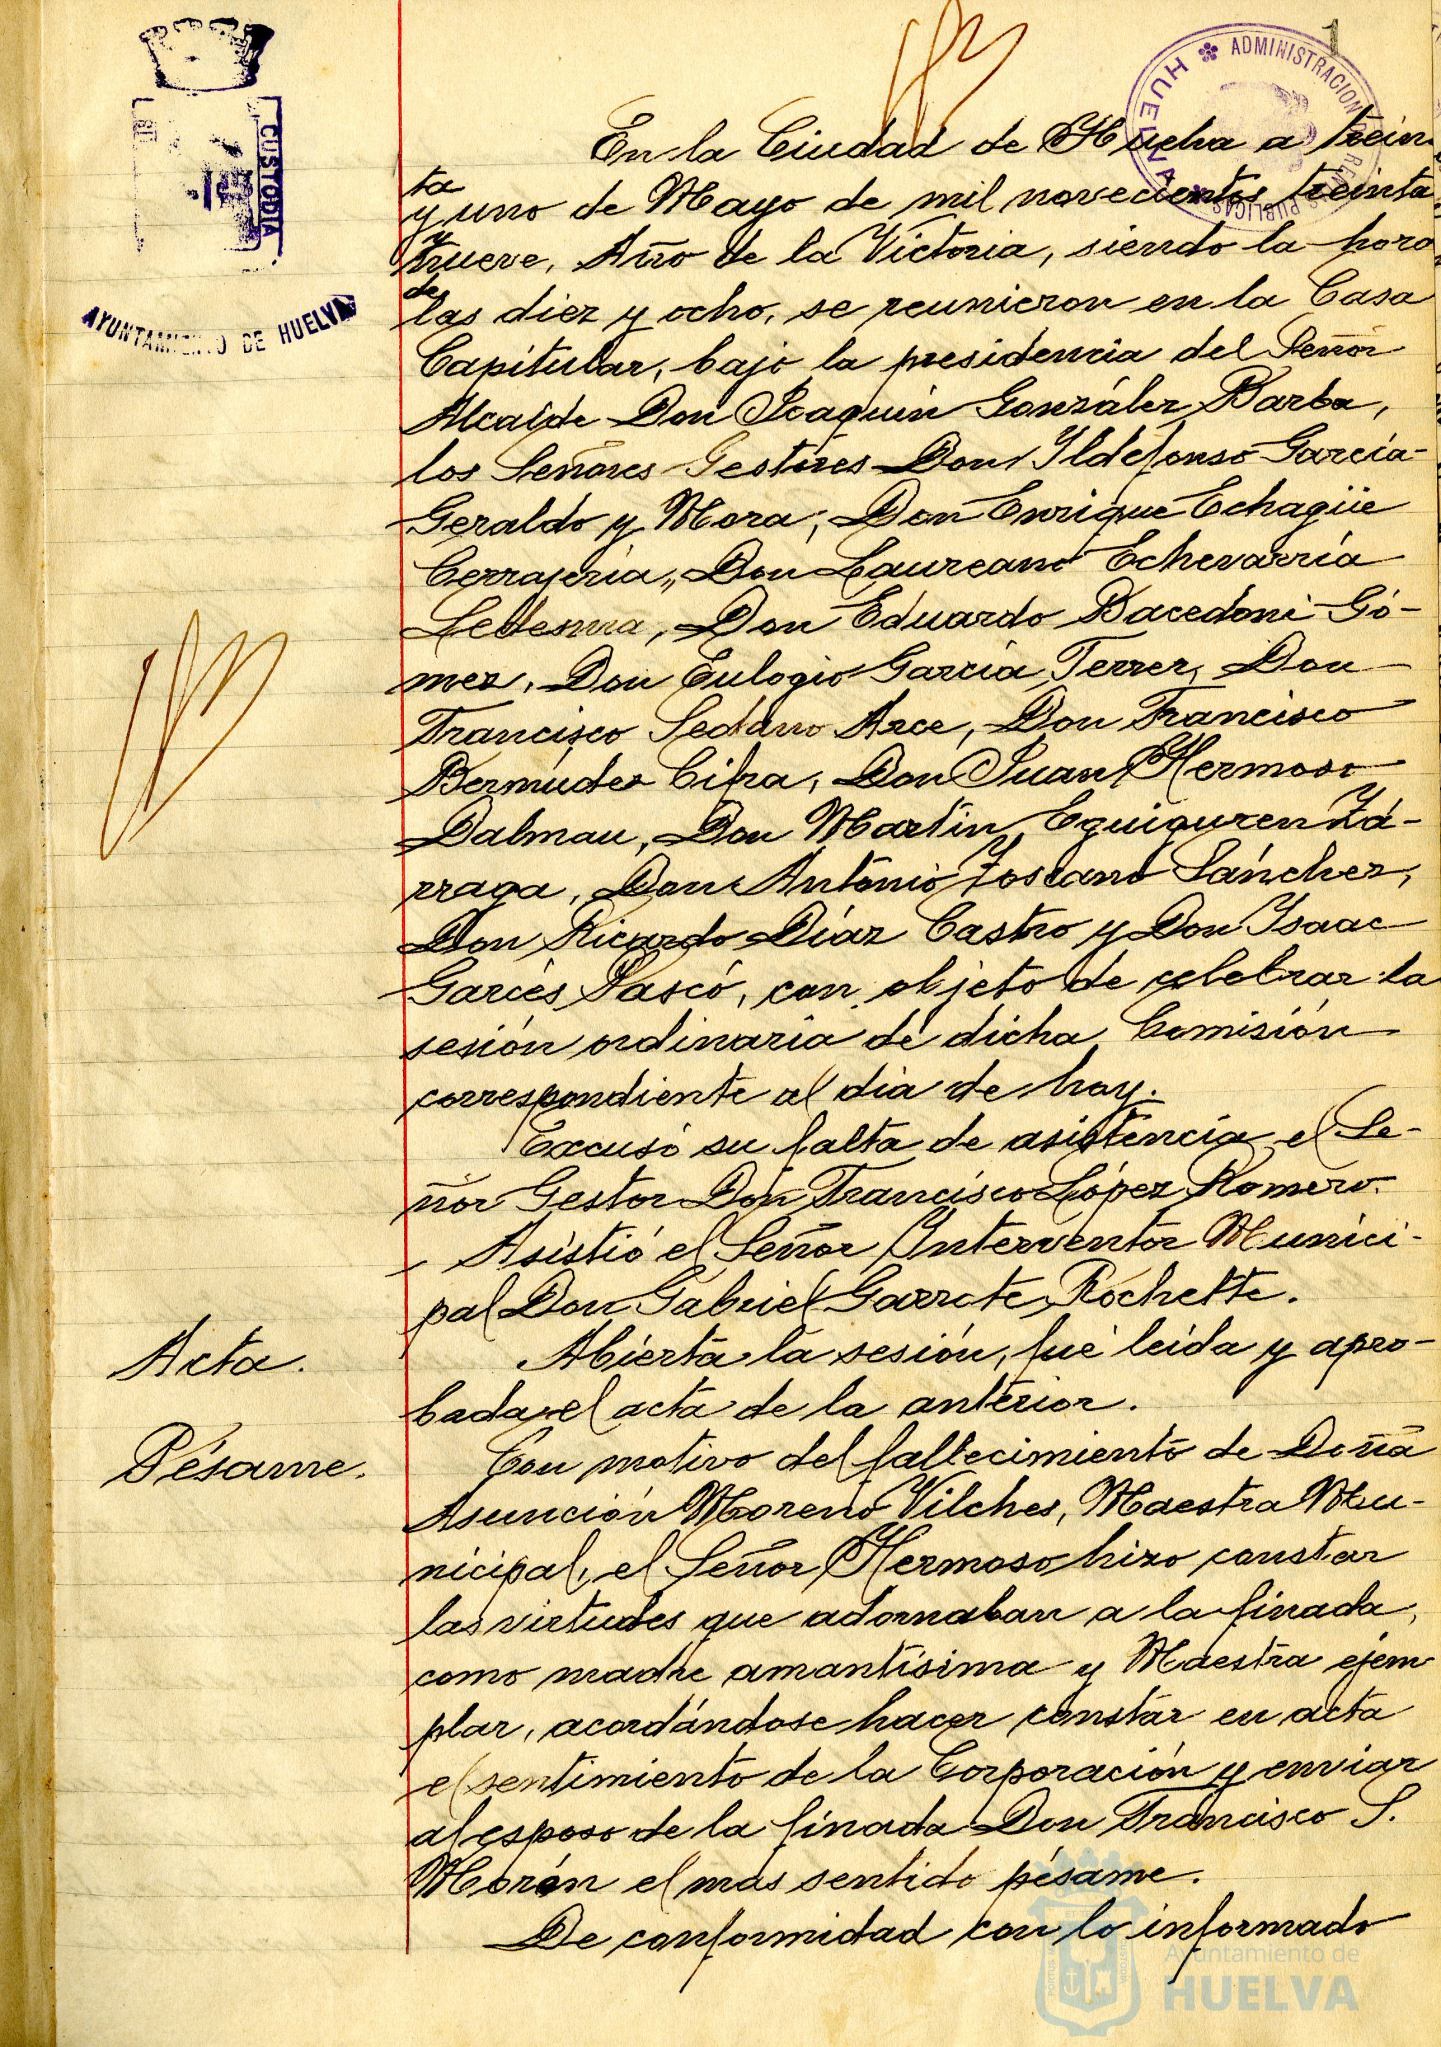 1
ADMINISTRACION DE RENTAS PUBLICAS
HUELVA
CUSTODIA
AYUNTAMIENTO DE HUELVA
En la Ciudad de Huelva a trein
ta
y uno de Mayo de mil novecientos treinta
y
nueve, Año de la Victoria, siendo la hora
de
las diez y ocho, se reunieron en la Casa
Capitular, bajo la presidencia del Señor
Alcalde Don Joaquín González Barba,
los Señores Gestores Don Ildefonso García-
Geraldo y Mora, Don Enrique Echagüe
Cerrajería, Don Laureano Echevarría
Ledesma, Don Eduardo Bacedoni Gó-
mez, Don Eulogio García Ferrer, Don
Francisco Sedano Arce, Don Francisco
Bermúdez Cifra, Don Juan Hermoso
Dalmau, Don Martín Eguiguren Zá-
rraga, Don Antonio Toscano Sánchez,
Don Ricardo Díaz Castro y Don Isaac
Garcés Pascó, con objeto de celebrar la
sesión ordinaria de dicha Comisión
correspondiente al día de hoy.
Excusó su falta de asistencia el Se-
ñor Gestor Don Francisco López Romero.
Asistió el Señor Interventor Munici-
pal Don Gabriel Garrote Rochette.
Acta.
Abierta la sesión, fué leída y apro-
bada el acta de la anterior.
Pésame.
Con motivo del fallecimiento de Doña
Asunción Moreno Vilches, Maestra Mu-
nicipal, el Señor Hermoso hizo constar
las virtudes que adornaban a la finada,
como madre amantísima y Maestra ejem
plar, acordándose hacer constar en acta
el sentimiento de la Corporación y enviar
al esposo de la finada Don Francisco S.
Morón el mas sentido pésame.
De conformidad con lo informado
Ayuntamiento de
HUELVA